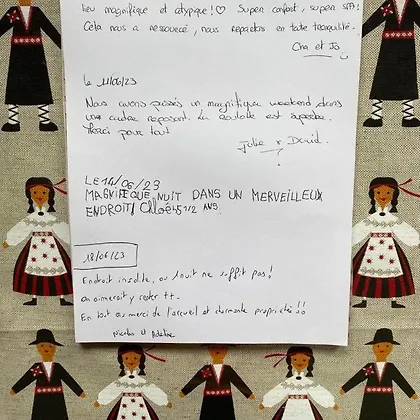 lieu magnifique et atypique ! ♡ Super confort, super
Cela nous a ressourcé, nous repartons en toute tranquilité.
Cha et Jo
le 11/06/23
Nous avons passés un magnifique weekend dans
un cadre reposant. La roulotte est superbe.
Merci pour tout
Julie & David.
LE 14/06/23
MAGNIFIQUE NUIT DANS UN MERVEILLEUX
ENDROIT/ Chloé 5 1/2 ANS
18/06/23
Endroit insolite, ou 1 nuit ne suffit pas !
On aimerait y rester ++.
En tout cas merci de l'accueil et charmante propriété !!
Nicolas et Adeline